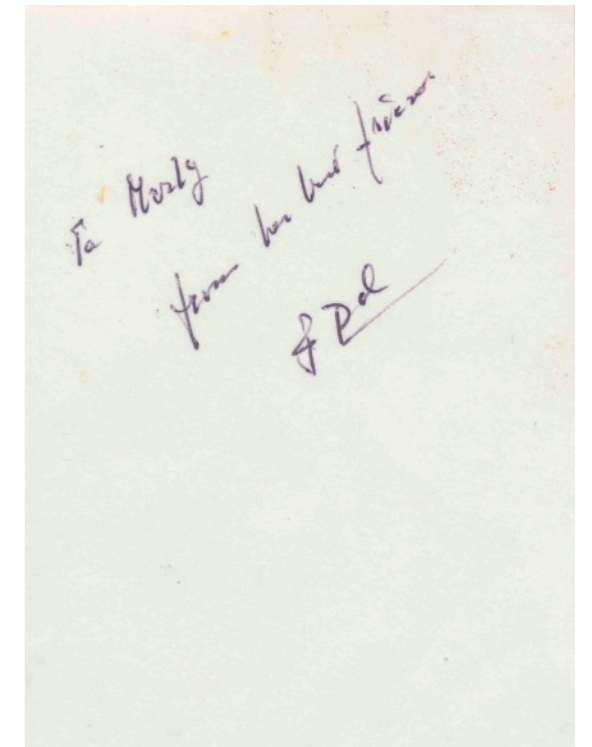 To Morly
from her best friend
J Pal